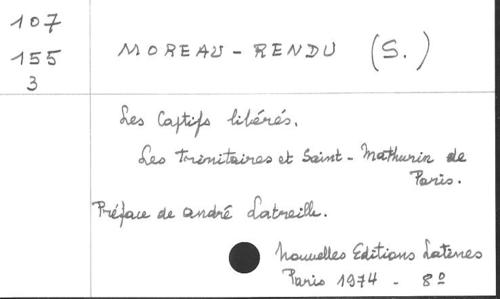 107
155
3
MOREAU - RENDU (S.)
Les Captifs libérés.
Les Trinitaires et Saint - Mathurin de
Paris.
Préface de André Latreille.
Nouvelles Editions Latines
Paris 1974 - 8º